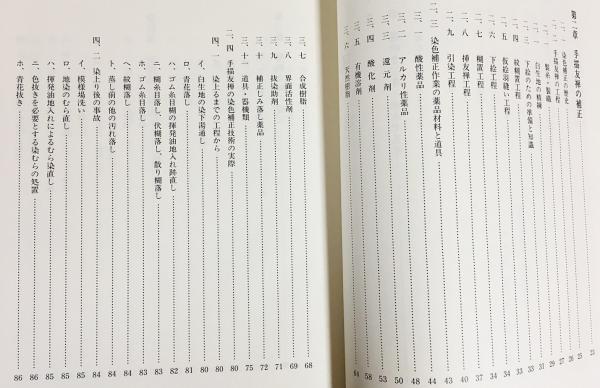 第二章 手描友禅の補正
染色補正の歴史
手描友禅の工程
製糸・製織
白生地の精練
下絵のための準備と知識
二、五 下絵工程
仮絵羽縫い工程
二、四 紋糊置工程
二、六 下絵工程
二、七 糊置工程
二、八 挿友禅工程
二、九 引染工程
二、三 染色補正作業の薬品材料と道具
三、一 酸性薬品
三、二 アルカリ性薬品
三、三 還元剤
三、四 酸化剤
三、五 有機溶剤
三、六 天然樹脂
三、七 合成樹脂……68
三、八 界面活性剤……69
三、九 抜染助剤……71
三、十 補正しみ落し薬品……72
三、十一 道具・器機類……75
二、四 手描友禅の染色補正技術の実際……80
四、一 染上るまでの工程から……80
イ、白生地の染下湯通し……80
ロ、青花落し……81
ハ、ゴム糸目糊の揮発油地入れ跡直し……82
ニ、糊糸目落し、伏糊落し、散り糊落し……82
ホ、ゴム糸目落し……83
ヘ、紋糊落し……84
ト、蒸し前の他の汚れ落し……84
四、二 染上り後の事故……84
イ、模様場洗い……84
ロ、地染のむら直し……85
ハ、揮発油地入れによるむら染直し……85
ニ、色抜きを必要とする染むらの処置……86
ホ、青花抜き……86